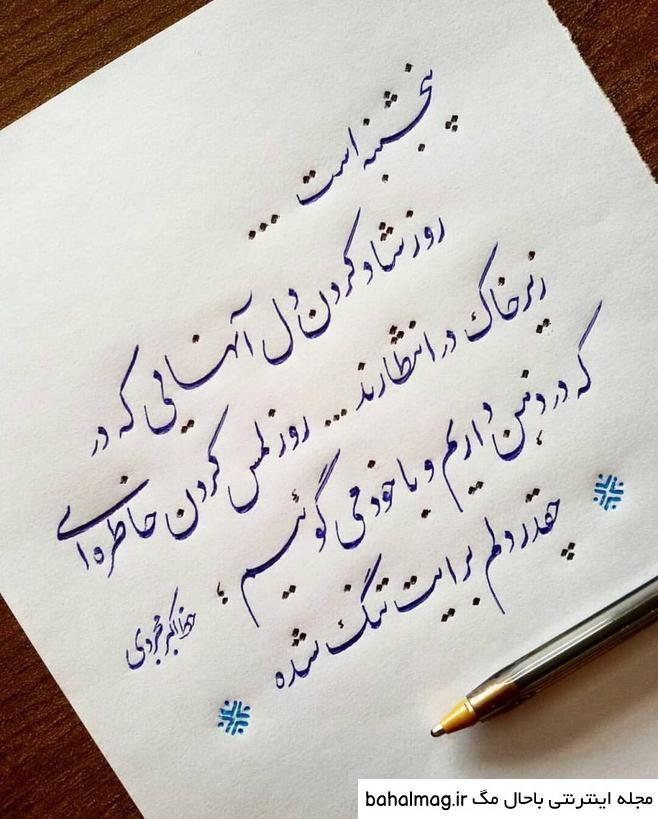 پنجشنبه است ...
روز شاد کردن دل آنهایی که در
زیر خاک در انتظارند... روز لمس کردن خاطره ای
که در ذهن داریم و با خود می گوئیم ؛
چقدر دلم برایت تنگ شده
مجله اینترنتی باحال مگ bahalmag.ir